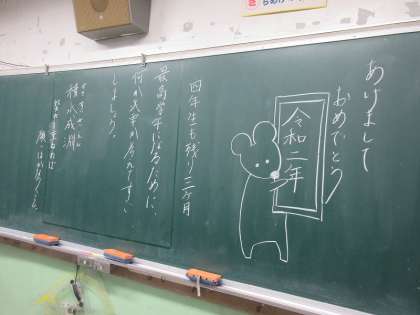 あけまして
おめでとう
令和二年
四年生も残り三ヶ月
最高学年になるために、
何が大事か考えて
しましょう。
積水成淵